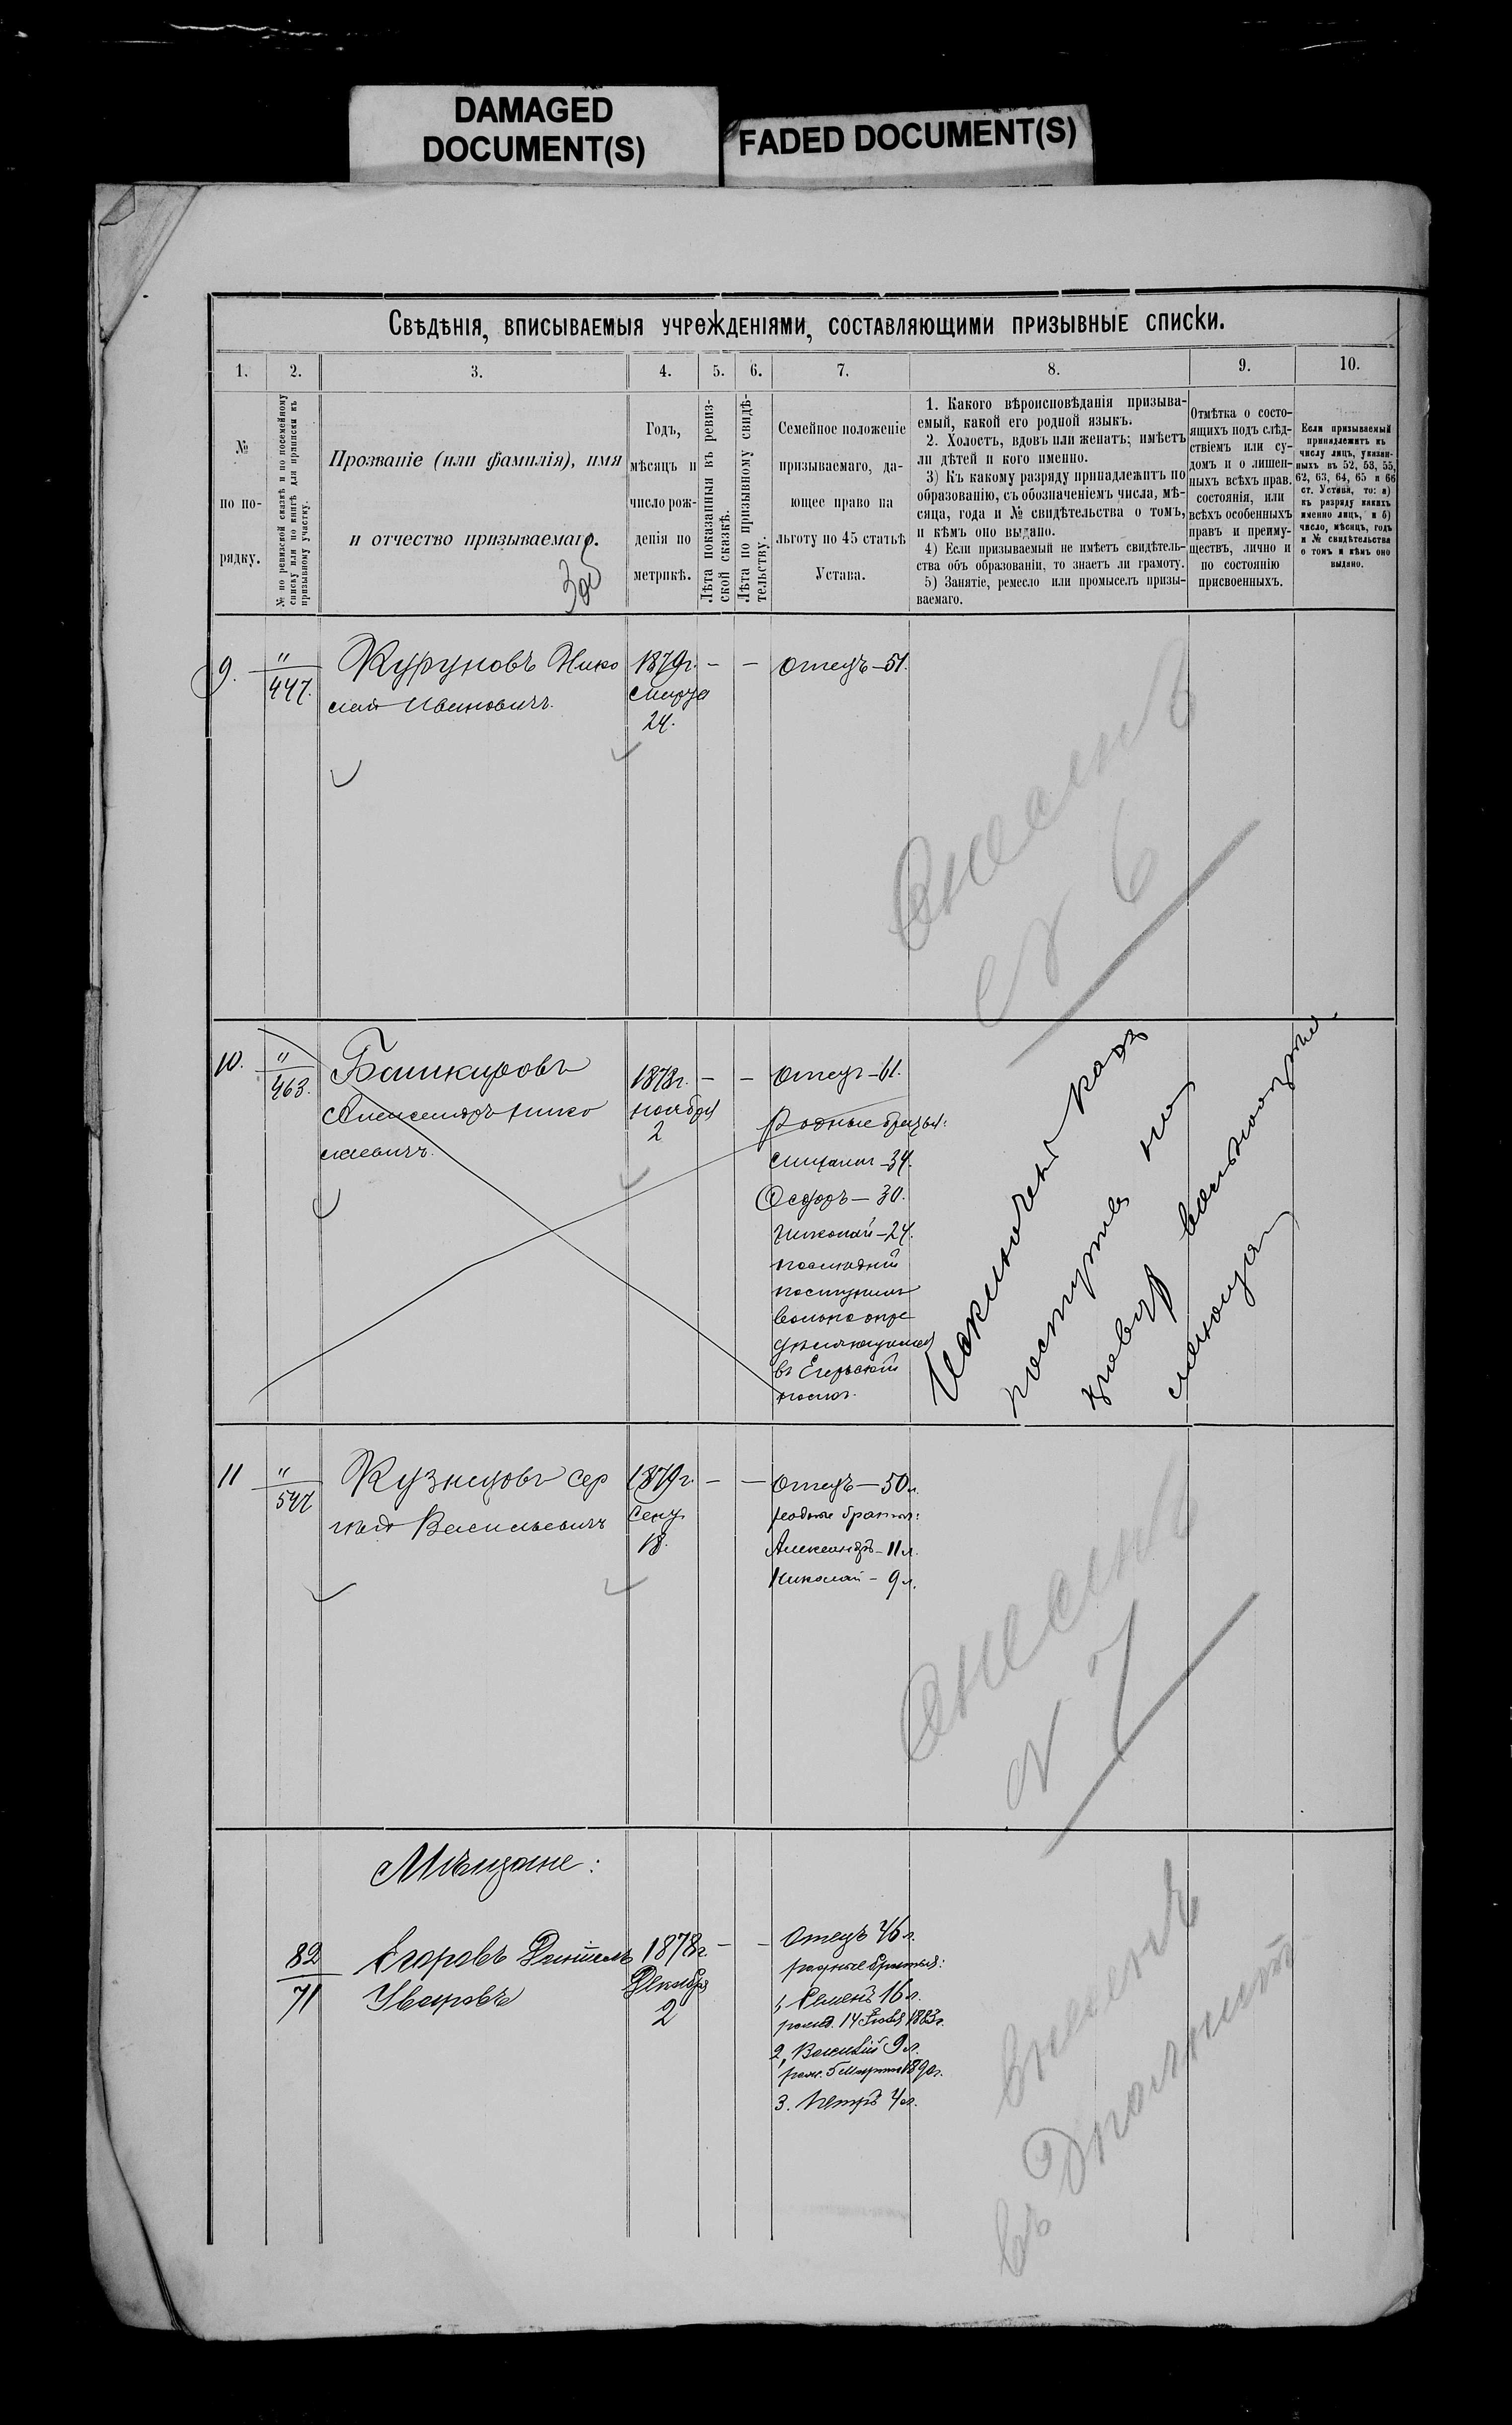 DAMAGED
DOCUMENT(S)
FADED DOCUMENT(S)
Свѣдѣнія, вписываемыя учрежденіями, составляющими призывные списки.
1. 2. 3. 4. 5. 6. 7. 8. 9. 10.
№
по по-
рядку.
№ по ревизской сказкѣ и по посемейному
списку или по книгѣ для приписки къ
призывному участку.
Прозваніе (или фамилія), имя
и отчество призываемаго.
Годъ,
мѣсяцъ и
число рож-
денія по
метрикѣ.
Лѣта показанныя въ ревиз-
ской сказкѣ.
Лѣта по призывному свидѣ-
тельству.
Семейное положеніе
призываемаго, да-
ющее право на
льготу по 45 статьѣ
Устава.
1. Какого вѣроисповѣданія призыва-
емый, какой его родной языкъ.
2. Холостъ, вдовъ или женатъ; имѣетъ
ли дѣтей и кого именно.
3) Къ какому разряду принадлежитъ по
образованію, съ обозначеніемъ числа, мѣ-
сяца, года и № свидѣтельства о томъ,
и кѣмъ оно выдано.
4) Если призываемый не имѣетъ свидѣтель-
ства объ образованіи, то знаетъ ли грамоту.
5) Занятіе, ремесло или промыселъ призы-
ваемаго.
Отмѣтка о состо-
ящихъ подъ слѣд-
ствіемъ или су-
домъ и о лишен-
ныхъ всѣхъ прав.
состоянія, или
всѣхъ особенныхъ
правъ и преиму-
ществъ, лично и
по состоянію
присвоенныхъ.
Если призываемый
принадлежитъ къ
числу лицъ, указан-
ныхъ въ 52, 53, 55,
62, 63, 64, 65 и 66
ст. Устава, то: а)
къ разряду какихъ
именно лицъ, и б)
число, мѣсяцъ, годъ
и № свидѣтельства
о томъ и кѣмъ оно
выдано.
9.
"
447.
Журуновъ Нико
лай Ивановичъ.
1879г.
Марта
24.
– –
Отецъ – 51.
Внесенъ
№ 6
10.
"
463.
Башкировъ
Александръ Нико
лаевичъ.
1878г.
ноября
2
– –
Отецъ – 61.
Родные братья:
Михаилъ – 34.
Ѳедоръ – 30.
Николай – 24.
послѣдній
поступилъ
вольноопре
дѣляющимся
въ Егерскій
полкъ.
Исключенъ какъ
11
"
547
Кузнецовъ Сер
гѣй Васильевичъ
1879г.
Сент.
18.
– –
Отецъ – 50 л.
родные братья:
Александръ – 11 л.
Николай – 9 л.
Внесенъ
№ 7
Мѣщане:
82
71
Егоровъ Даніилъ
1878г.
Декабря
2
– –
Отецъ 46 л.
родные братья:
1, Семенъ 16 л.
14 1883г.
2, Василій 9 л.
5 Марта 1890г.
3. Петръ 4 л.
Внесенъ
въ